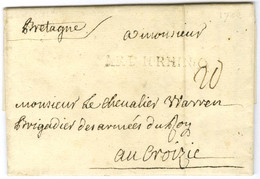 Bretagne
a monsieur
20
monsieur le chevalier Warren
Brigadier des armées du Roy
au Croizic